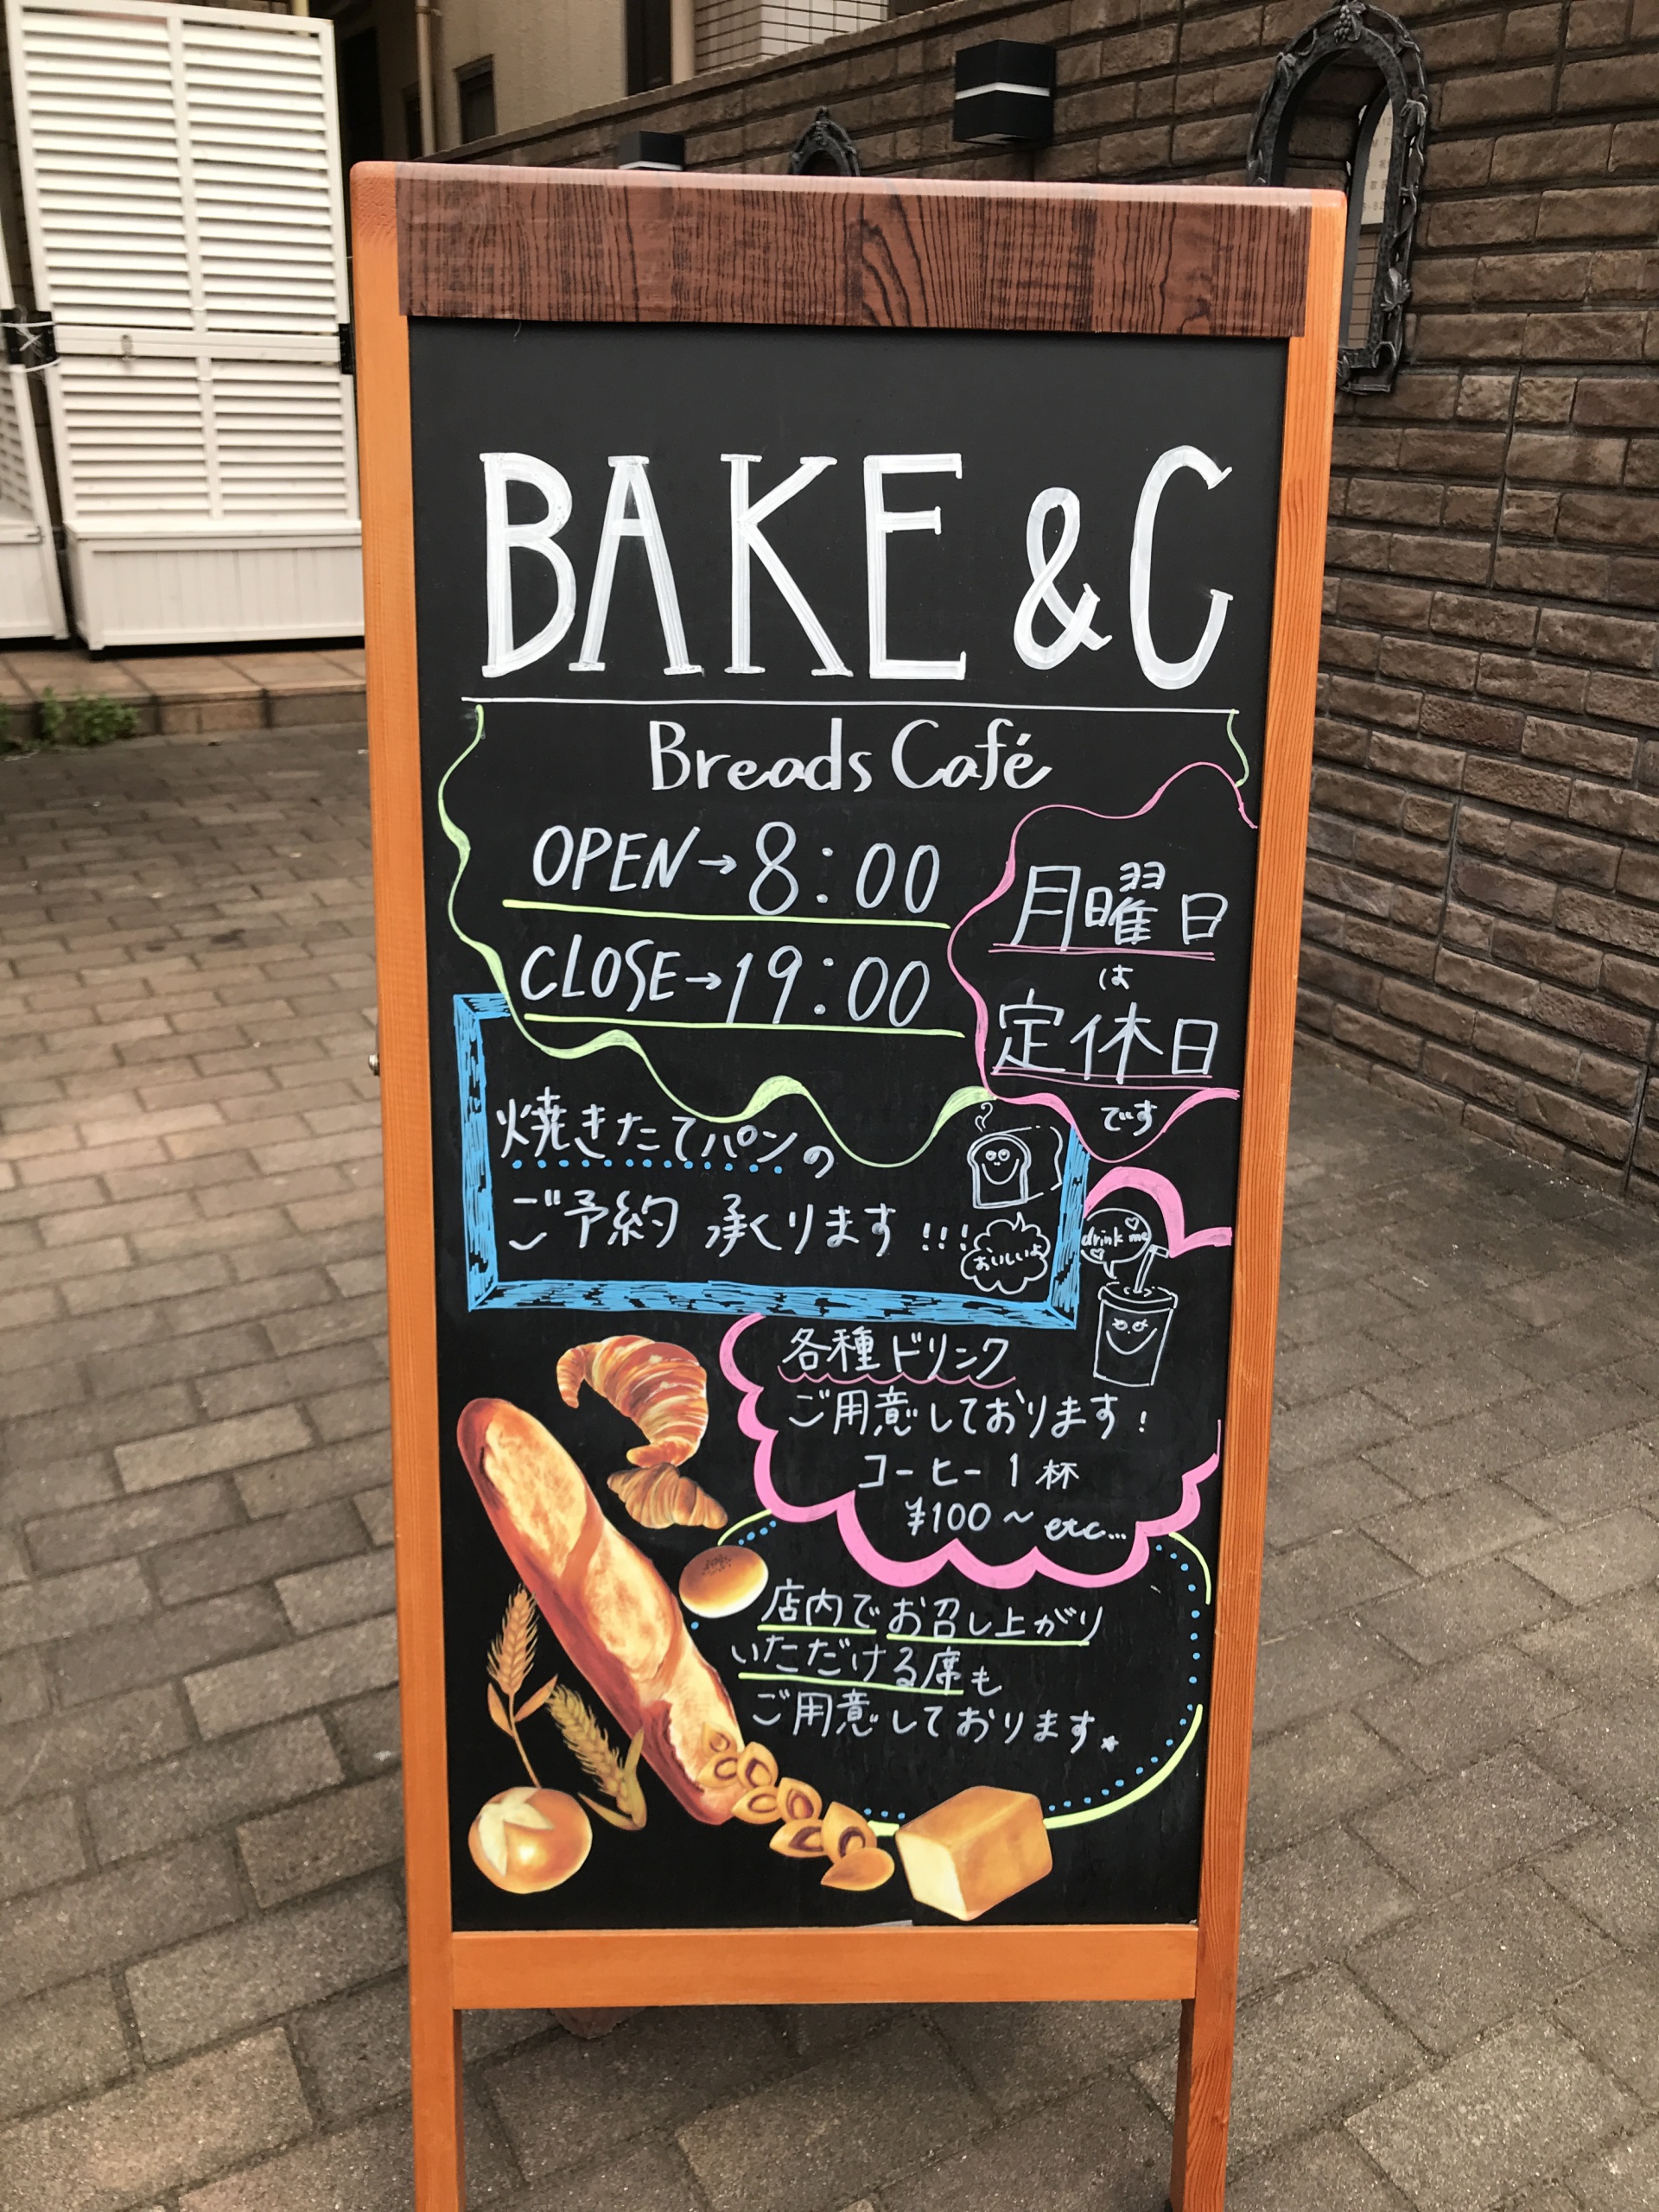 BAKE & C
Breads Café
OPEN→8:00
CLOSE→19:00
月曜日
は
定休日
です
焼きたてパンの
ご予約 承くります !!!
おいしいよ
drink me
各種ドリンク
ご用意しております!
コーヒー 1杯
¥100〜 etc...
店内でお召し上がり
いただける席も
ご用意しております。